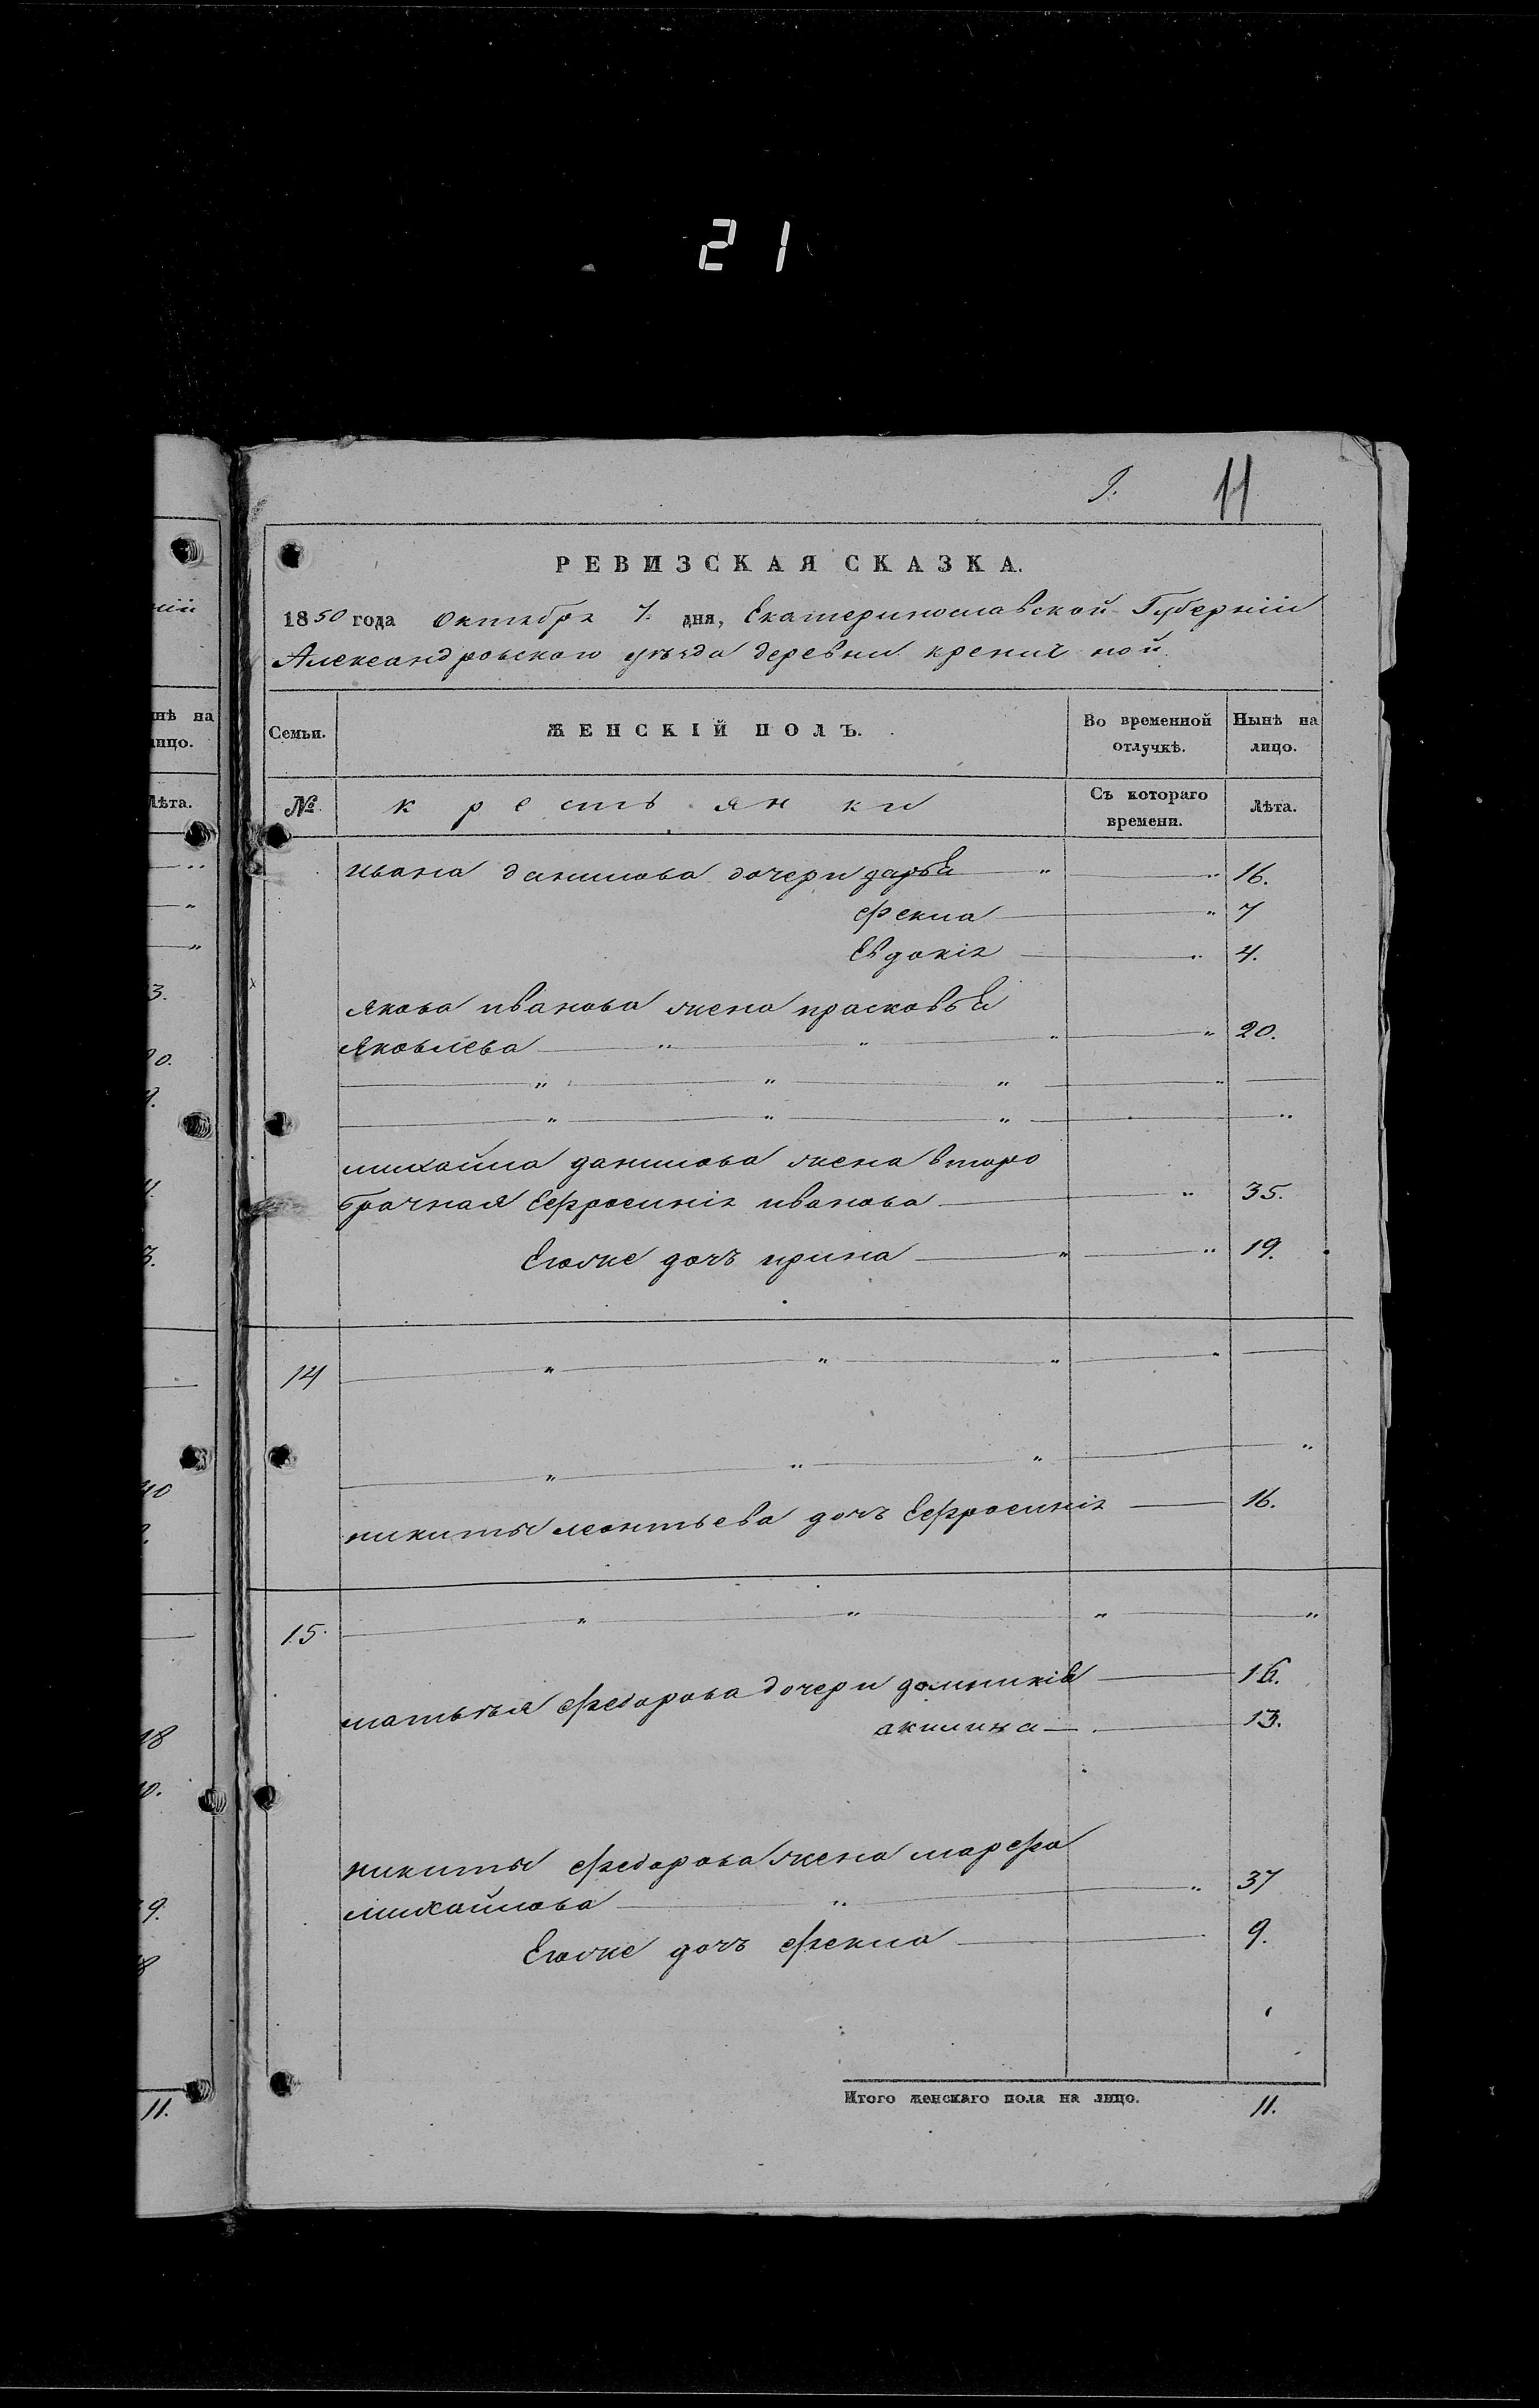 21
9. 11
РЕВИЗСКАЯ СКАЗКА.
1850 года Октября 7. дня, Екатеринославской Губерніи
Александровскаго уѣзда деревни кренич ной
Семьи. ЖЕНСКІЙ ПОЛЪ. Во временной отлучкѣ. Нынѣ на лицо.
№ крестьянки Съ котораго времени. Лѣта.
ивана данилова дочери дарья 16.
Фекла 7
Евдокія 4.
якова иванова жена прасковья
Яковлева 20.
михайла данилова жена второ
брачная Ефросинія иванова 35.
Егоже дочъ ирина 19.
14
никиты леонтьева дочъ Ефросинія 16.
15.
матвѣя федорова дочери домникія 16.
акилина 13.
никиты федорова жена марфа
михайлова 37
Егоже дочъ фекла 9.
Итого женскаго пола на лицо. 11.
ніи
нѣ на
лицо.
Лѣта.
3.
20.
40
18
9.
11.